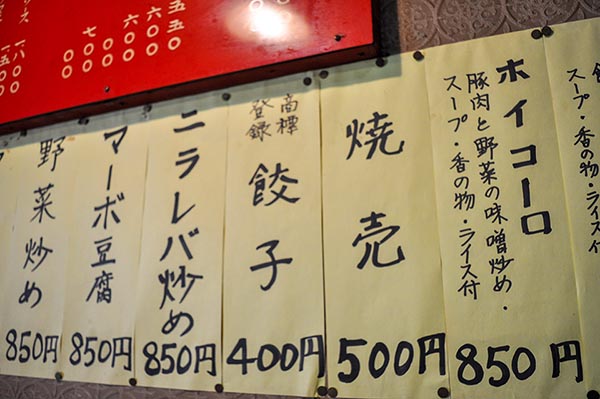 スープ・香の物・ライス付
ホイコーロ
豚肉と野菜の味噌炒め・
スープ・香の物・ライス付
850円
焼売
500円
商標
登録
餃子
400円
ニラレバ炒め
850円
マーボ豆腐
850円
野菜炒め
850円
五五〇